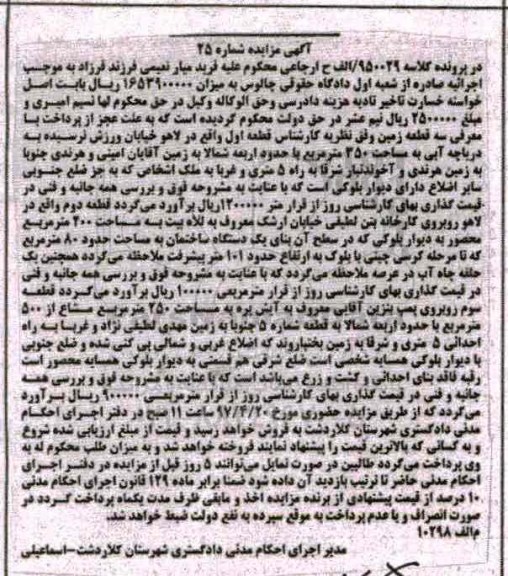 آگهی مزایده شماره ۲۵
در پرونده کلاسه ۹۵۰۰۲۹/الف ح ارجاعی محکوم علیه فرید میار نعیمی فرزند فرزاد به موجب
اجرائیه صادره از شعبه اول دادگاه حقوقی چالوس به میزان ۱۶۵۳۹۰۰۰۰۰ ریال بابت اصل
خواسته خسارت تاخیر تادیه هزینه دادرسی وحق الوکاله وکیل در حق محکوم لها نسیم امیری و
مبلغ ۲۵۰۰۰۰۰ ریال نیم عشر در حق دولت محکوم گردیده است که به علت عجز از پرداخت با
معرفی سه قطعه زمین وفق نظریه کارشناس قطعه اول واقع در لاهو خیابان ورزش نرسیده به
دریاچه آبی به مساحت ۳۵۰ مترمربع با حدود اربعه شمالا به زمین آقایان امینی و هرندی جنوبا
به زمین هرندی و آخوندتبار شرقا به راه ۵ متری و غربا به ملک اشخاص که به جز ضلع جنوبی
سایر اضلاع دارای دیوار بلوکی است که با عنایت به مشروحه فوق و بررسی همه جانبه و فنی در
قیمت گذاری بهای کارشناسی روز از قرار متر ۱۲۰۰۰۰۰ ریال برآورد می‌گردد قطعه دوم واقع در
لاهو روبروی کارخانه بتن لطیفی خیابان ارشک معروف به تلاه بیت به مساحت ۲۰۰ مترمربع
محصور به دیوار بلوکی که در سطح آن بنای یک دستگاه ساختمان به مساحت حدود ۸۰ مترمربع
که تا مرحله کرسی چینی با بلوک به ارتفاع حدود ۱۰۱ متر پیشرفت ملاحظه می‌گردد همچنین یک
حلقه چاه آب در عرصه ملاحظه می‌گردد که با عنایت به مشروحه فوق و بررسی همه جانبه و فنی
در قیمت گذاری بهای کارشناسی روز از قرار مترمربعی ۱۰۰۰۰۰ ریال برآورد می‌گردد قطعه
سوم روبروی پمپ بنزین آقایی معروف به آیش پره به مساحت ۲۵۰ مترمربع مشاع از ۵۰۰
مترمربع با حدود اربعه شمالا به قطعه شماره ۵ جنوبا به زمین مهدی لطیفی نژاد و غربا به راه
احداثی ۵ متری و شرقا به زمین بختیاروند که اضلاع غربی و شمالی پی کنی شده و ضلع جنوبی
با دیوار بلوکی همسایه شخصی است ضلع شرقی هم قسمتی به دیوار بلوکی همسایه محصور است
رقبه فاقد بنای احداثی و کشت و زرع می‌باشد است که با عنایت به مشروحه فوق و بررسی همه
جانبه و فنی در قیمت گذاری بهای کارشناسی روز از قرار مترمربعی ۹۰۰۰۰۰ ریال برآورد
می‌گردد که از طریق مزایده حضوری مورخ ۹۷/۴/۲۰ ساعت ۱۱ صبح در دفتر اجرای احکام
مدنی دادگستری شهرستان کلاردشت به فروش خواهد رسید و قیمت از مبلغ ارزیابی شده شروع
و به کسانی که بالاترین قیمت را پیشنهاد نمایند فروخته خواهد شد و به میزان طلب محکوم له به
وی پرداخت می‌گردد طالبین در صورت تمایل می‌توانند ۵ روز قبل از مزایده در دفتر اجرای
احکام مدنی حاضر تا ترتیب بازدید آن داده شود ضمنا برابر ماده ۱۲۹ قانون اجرای احکام مدنی
۱۰ درصد از قیمت پیشنهادی از برنده مزایده اخذ و مابقی ظرف مدت یکماه پرداخت گردد در
صورت انصراف و یا عدم پرداخت به موقع سپرده به نفع دولت ضبط خواهد شد.
م‌الف ۱۰۲۹۸
مدیر اجرای احکام مدنی دادگستری شهرستان کلاردشت-اسماعیلی